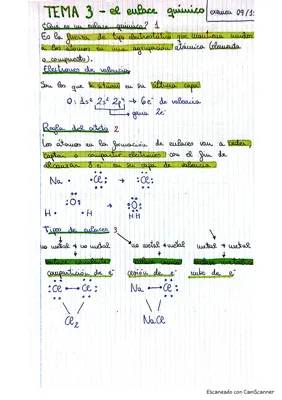 TEMA 3 - el enlace químico
examen 09/1
¿Qué es un enlace químico? 1
Es la fuerza de tipo electrostático que mantiene unidos
a los átomos en una agrupación atómica (elemento
o compuesto).
Electrones de valencia
Son los que se sitúan en su última capa
O: 1s² 2s² 2p⁴ → 6e⁻ de valencia
gana 2e⁻
Regla del octeto 2
Los átomos en la formación de enlaces van a ceder,
captar o compartir electrones con el fin de
alcanzar 8 e⁻ en su capa de valencia
Na · Cl : → : Cl :
H · · O · · H → O
H H
Tipos de enlaces 3
no metal + no metal no metal + metal metal + metal
compartición de e⁻ cesión de e⁻ nube de e⁻
Cl Cl Na Cl
Cl₂ NaCl
Escaneado con CamScanner